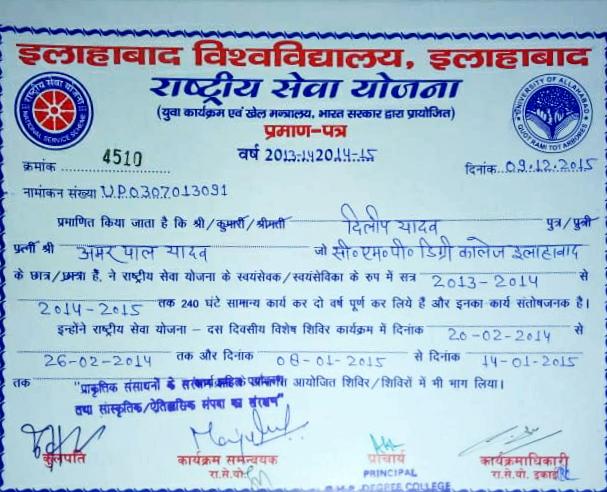 इलाहाबाद विश्वविद्यालय, इलाहाबाद
राष्ट्रीय सेवा योजना
(युवा कार्यक्रम एवं खेल मन्त्रालय, भारत सरकार द्वारा प्रायोजित)
प्रमाण-पत्र
राष्ट्रीय सेवा योजना
NATIONAL SERVICE SCHEME
UNIVERSITY OF ALLAHABAD
QUOT RAMI TOT ARBORES
क्रमांक 4510 वर्ष 2013-14 2014-15 दिनांक 09.12.2015
नामांकन संख्या U.P.0307013091
प्रमाणित किया जाता है कि श्री/कुमारी/श्रीमती दिलीप यादव पुत्र/पुत्री
पत्नी श्री अमर पाल यादव जो सी०एम०पी० डिग्री कालेज इलाहाबाद
के छात्र/छात्रा हैं, ने राष्ट्रीय सेवा योजना के स्वयंसेवक/स्वयंसेविका के रुप में सत्र 2013-2014 से
2014-2015 तक 240 घंटे सामान्य कार्य कर दो वर्ष पूर्ण कर लिये हैं और इनका कार्य संतोषजनक है।
इन्होंने राष्ट्रीय सेवा योजना - दस दिवसीय विशेष शिविर कार्यक्रम में दिनांक 20-02-2014 से
26-02-2014 तक और दिनांक 08-01-2015 से दिनांक 14-01-2015
तक "प्राकृतिक संसाधनों के आयोजित शिविर/शिविरों में भी भाग लिया।
तथा सांस्कृतिक/ऐतिहासिक संपदा का संरक्षण"
कुलपति कार्यक्रम समन्वयक प्राचार्य कार्यक्रमाधिकारी
रा.से.यो. PRINCIPAL रा.से.यो. इकाई
C.M.P. DEGREE COLLEGE